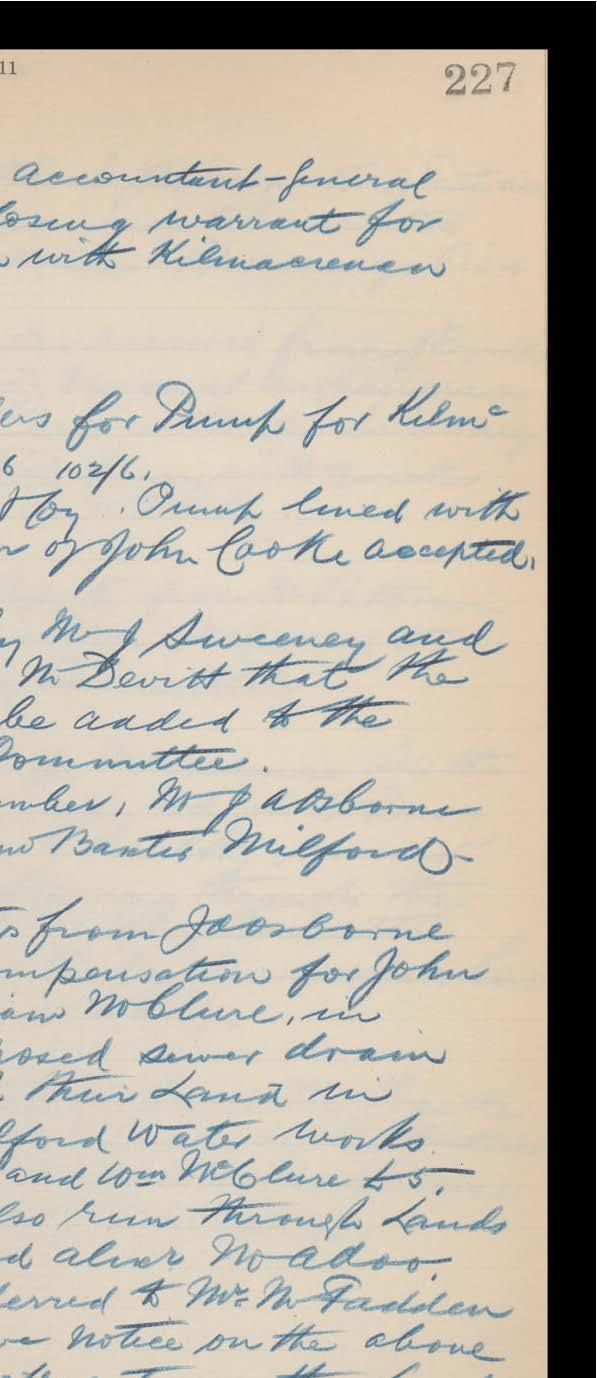 11 227
accountant-general
losing warrant for
with Kilmacrenan
ers for Pump for Kilmc
6 102/6.
Pump lined with
of John Cooke accepted.
Mr J Sweeney and
Mc Devitt that the
be added to the
Committee.
mber, Mr J A Osborne
Baxter Milford
from J A Osborne
mpensation for John
iam McClure, in
posed sewer drain
their Land in
lford Water works.
and Wm McClure £5.
lso run through Lands
McAdoo.
ferred to Mr McFadden
ve notice on the above